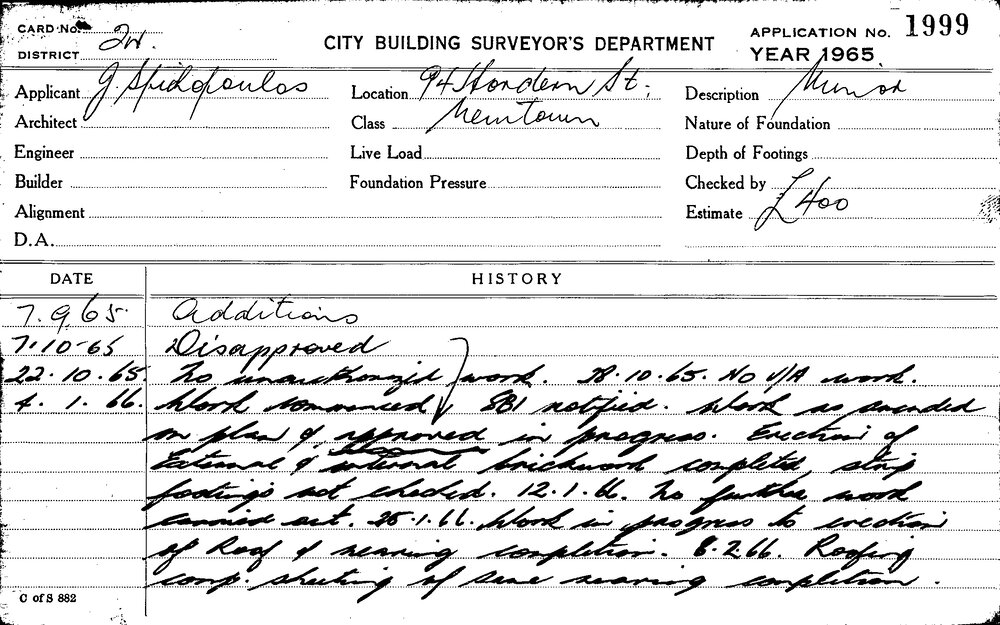 CARD No.
DISTRICT 2W.
CITY BUILDING SURVEYOR'S DEPARTMENT
APPLICATION No. 1999
YEAR 1965.
Applicant J. Spidopoulos
Location 94 Hordern St;
Description Minor
Architect
Class Newtown
Nature of Foundation
Engineer
Live Load
Depth of Footings
Builder
Foundation Pressure
Checked by
Alignment
Estimate £400
D.A.
DATE HISTORY
7.9.65. Additions
7.10-65 Disapproved
22.10.65. No unauthorized work. 28.10.65. NO U/A work.
4.1.66. Work commenced, SBI notified. Work as amended
on plan & approved in progress. Erection of
External & internal brickwork completed, strip
footings not checked. 12.1.66. No further work
carried out. 25.1.66. Work in progress to erection
of Roof & nearing completion. 8.2.66. Roofing
comp. sheeting of same nearing completion.
C of S 882